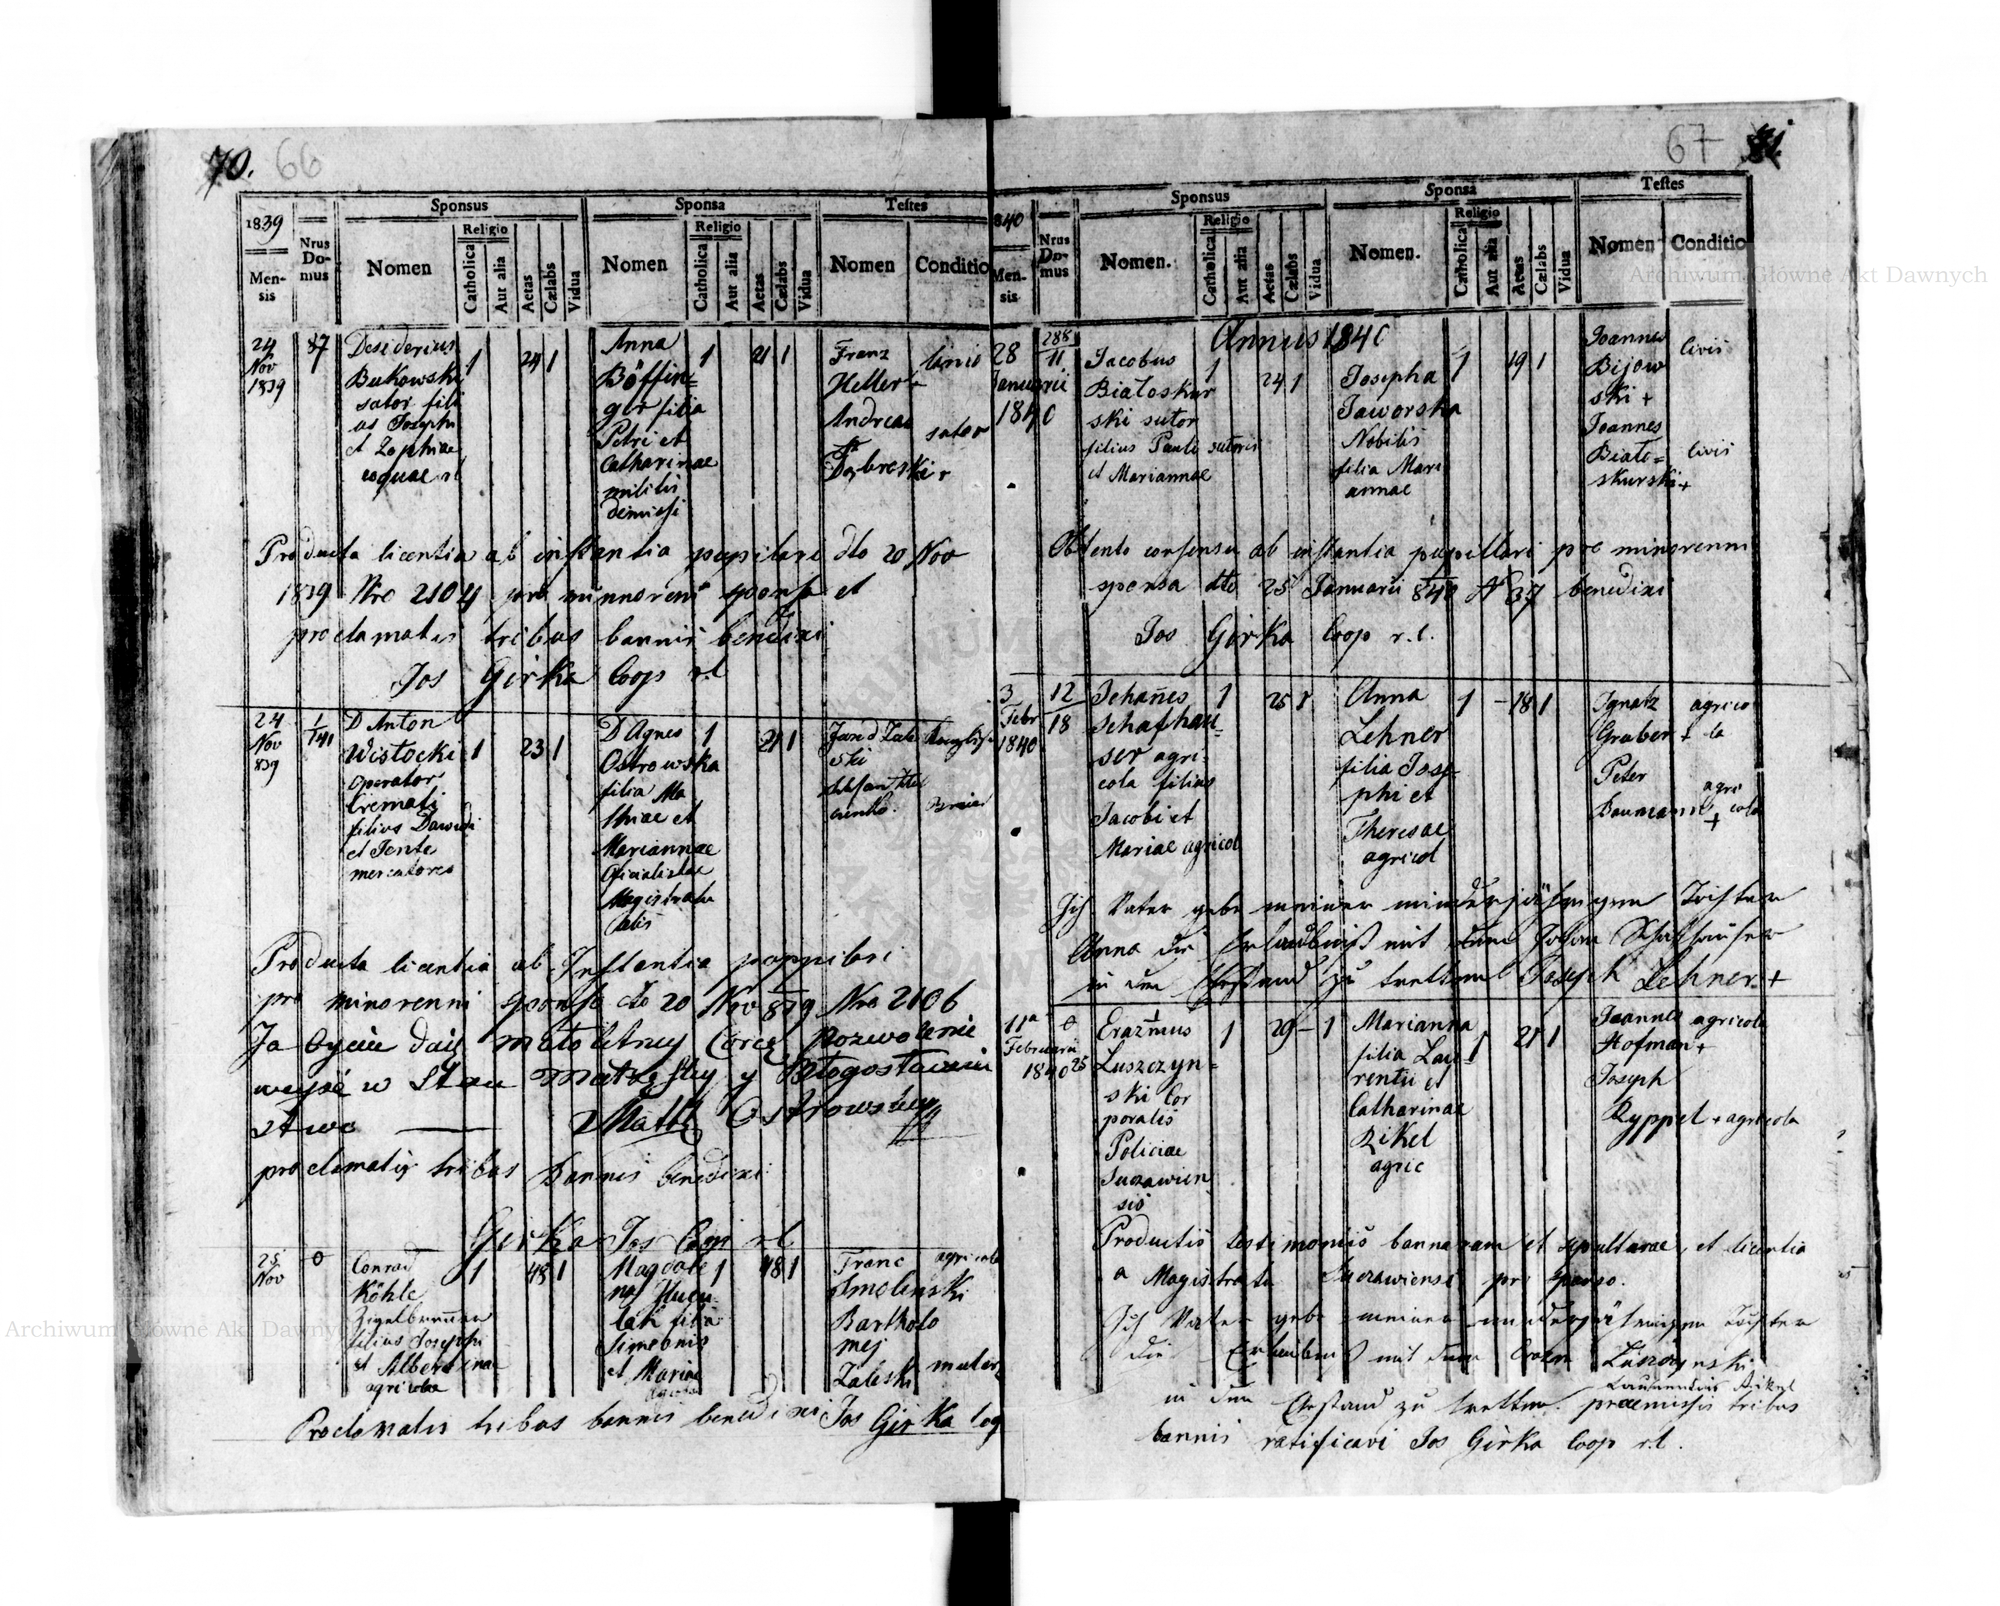 70. 66
1839
Mensis
Nrus Domus
Sponsus
Nomen
Religio
Catholica
Aut alia
Aetas
Cælabs
Vidua
Sponsa
Nomen
Religio
Catholica
Aut alia
Aetas
Cælabs
Vidua
Testes
Nomen
Conditio
24
Nov
1839
87
Desiderius
Bukowski
sator fili
us Josephi
et Zophiae
1
24 1
Anna
Böffin=
ger filia
Petri et
Catharinae
militis
1
21 1
Franz
Heller +
Andreas
civis
sator
Producta licentia ab instantia pupilari dto 20 Nov
1839 Nro 2104 pro minnoreni sponsa et
proclamatis tribus bannis benedixi
Jos Girka Coop r.l
24
Nov
839
1
141
D Anton
Wistocki
operator
Cremati
filius Dawidi
et Tente
mercatores
1
23 1
D Agnes
Ostrowska
filia Ma
thiae et
Mariannae
Oficialistae
Magistratu
alis
1
21 1
Producta licentia ab Instantia puppilari
pro minorenni sponsa dto 20 Nov 839 Nro 2106
Ja Oyciec daię małoletniey Corce Pozwolenie
weyść w Stan Małżęński y Błogosławień
stwo
Math Ostrowski
proclamatis tribus Bannis benedixi
Girka Jos Coop r.l
25
Nov
0
Conrad
Köhle
filius Josephi
et Albertina
agricolae
1
48 1
Magdale
na Hucu
lak filia
Simeonis
et Mariae
1
48 1
Franc
Smolenski
Bartholo
mej
Zaleski
agricola
Proclamatis tribus bannis benedixi Jos Girka Coop
67 71.
840
Mensis
Nrus Domus
Sponsus
Nomen.
Religio
Catholica
Aut alia
Aetas
Cælabs
Vidua
Sponsa
Nomen.
Religio
Catholica
Aut alia
Aetas
Cælabs
Vidua
Testes
Nomen
Conditio
Annus 1840
28
Januarii
1840
288
11
Jacobus
Białoskur
ski sutor
filius Pauli sutoris
et Mariannae
1
24 1
Josepha
Jaworska
Nobilis
filia Mari
annae
1
19 1
Joannes
Bijow
ski +
Joannes
Biało=
skurski +
civis
civis
Obtento consensu ab instantia pupillari pro minorenni
sponsa dto 25 Januarii 840 N 37 benedixi
Jos Girka Coop r.l.
3
Febr
1840
12
18
Johañes
Schafhau=
ser agri-
cola filius
Jacobi et
Mariae agricol
1
25 1
Anna
Lehner
filia Jose
phi et
Theresae
agricol
1
18 1
Ignatz
Gruber +
Peter
Baumann +
agrico
la
agri
cola
Ich Vater gebe meiner minderjährigen Tochter
Anna die Erlaubniß mit dem Johan Schafhauser
in den Ehestand zu tretten Joseph Lehner +
11a
Februarii
1840
0
25
Erazmus
Luszczyn=
ski Cor
poralis
Policiae
Suczawien
sis
1
29 – 1
Marianna
filia Lau
rentii et
Catharinae
Rikel
agric
1
21 1
Joannes
Hofman +
Joseph
Ryppel +
agricola
agricola
Productis testimoniis bannorum et sepulturae, et licentia
a Magistratu Suczawiensi pro sponso.
Ich Vater gebe meiner minderjährigen Tochter
die Erlaubniß mit dem Erazm Luszczynski
in den Ehestand zu tretten. Laurentius Rikel
praemissis tribus
bannis ratificavi Jos Girka Coop r.l.
Archiwum Główne Akt Dawnych
Archiwum Główne Akt Dawnych